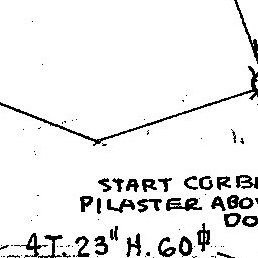 START CORBE
PILASTER ABOV
DO
4T. 23" H. 60#